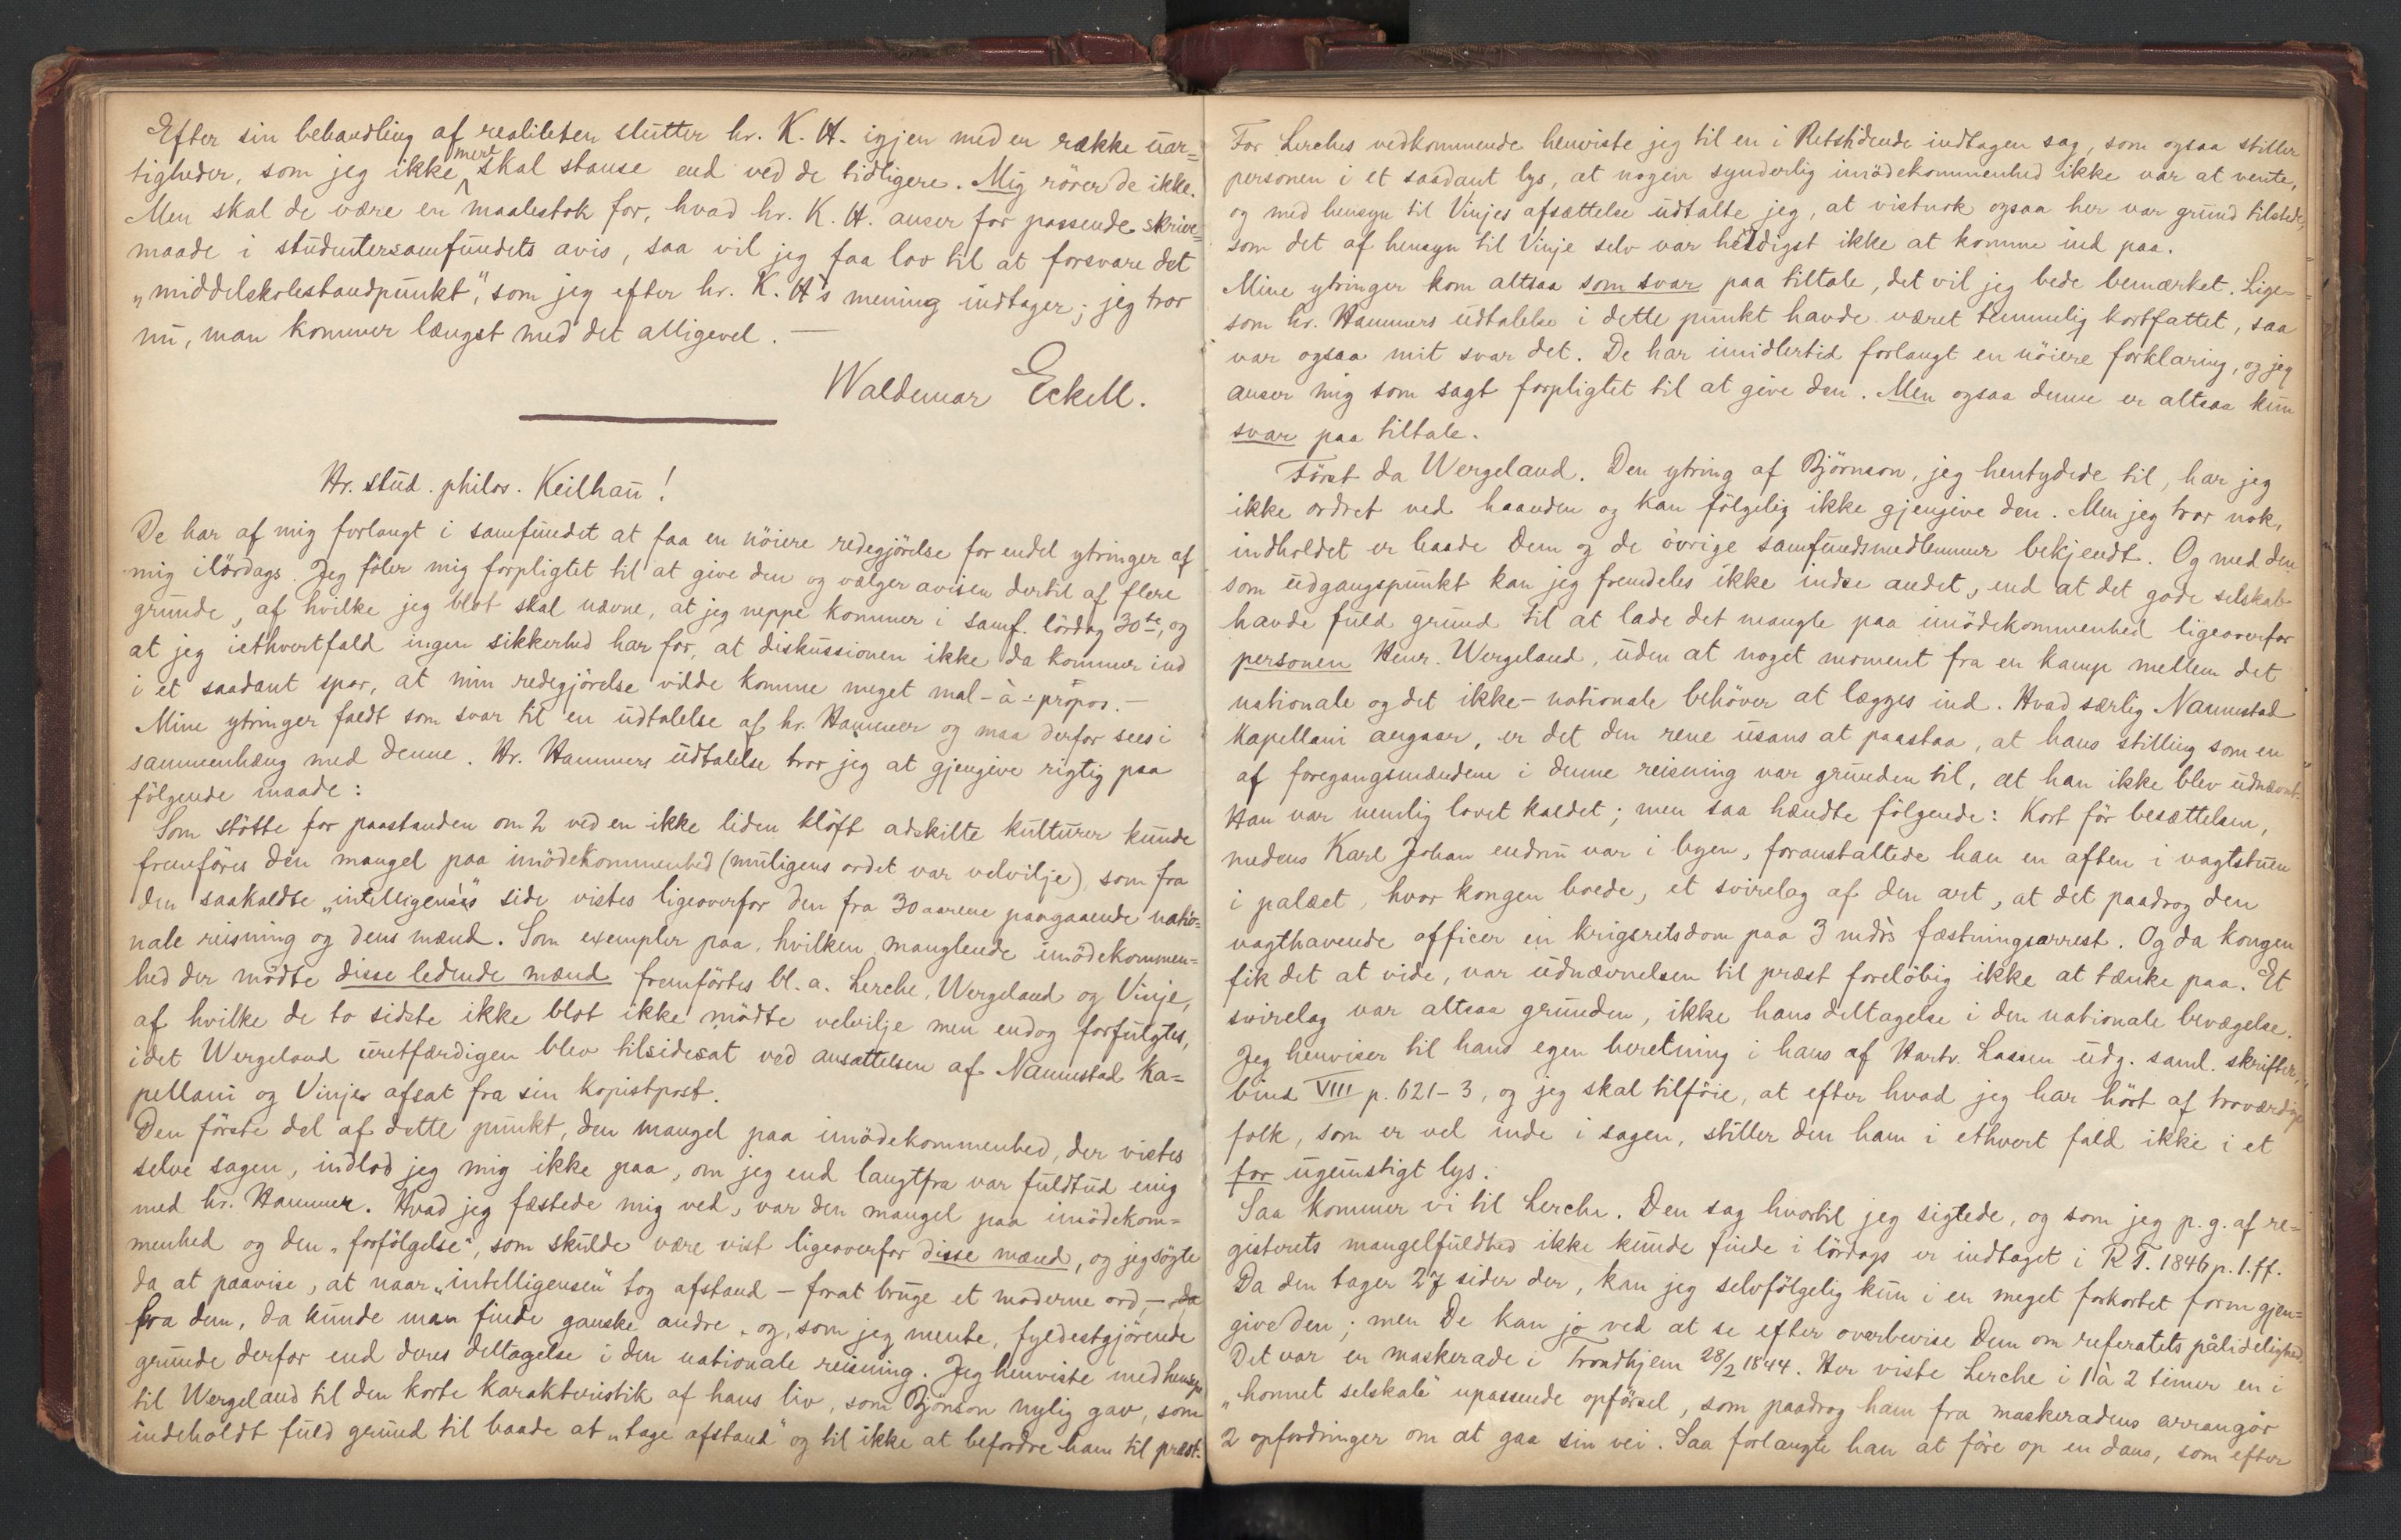 Efter sin behandling af realiteten slutter hr. K. H. igjen med en række uar-
tigheder, som jeg ikke mere skal stanse end ved de tidligere. Mig rører de ikke.
Men skal de være en maalestok for, hvad hr. K. H. anser for passende skrive-
maade i studentersamfundets avis, saa vil jeg faa lov til at forsvare det
„middelskolestandpunkt", som jeg efter hr. K. H's mening indtager; jeg tror
nu, man kommer længst med det alligevel. —
Waldemar Eckell.
Hr. stud. philos. Keilhau!
De har af mig forlangt i samfundet at faa en nöiere redegjörelse for endel ytringer af
mig ilördags. Jeg föler mig forpligtet til at give den og vælger avisen dertil af flere
grunde, af hvilke jeg blot skal nævne, at jeg neppe kommer i samf. lördag 30te, og
at jeg iethvertfald ingen sikkerhed har for, at diskussionen ikke da kommer ind
i et saadant spor, at min redegjörelse vilde komme meget mal-à-propos. —
Mine ytringer faldt som svar til en udtalelse af hr. Hammer og maa derfor sees i
sammenhæng med denne. Hr. Hammers udtalelse tror jeg at gjengive rigtig paa
fölgende maade:
Som stötte for paastanden om 2 ved en ikke liden klöft adskilte kulturer kunde
fremföres den mangel paa imödekommenhed (muligens ordet var velvilje), som fra
den saakaldte „intelligenses" side vistes ligeoverfor den fra 30 aarene paagaaende natio-
nale reisning og dens mænd. Som exempler paa, hvilken manglende imödekommen-
hed der mödte disse ledende mænd fremförtes bl. a. Lerche, Wergeland og Vinje,
af hvilke de to sidste ikke blot ikke mödte velvilje men endog forfulgtes,
idet Wergeland uretfærdigen blev tilsidesat ved ansattelsen af Nannestad ka-
pellani og Vinje afsat fra sin kopistpost.
Den förste del af dette punkt, den mangel paa imödekommenhed, der vistes
selve sagen, indlod jeg mig ikke paa, om jeg end langtfra var fuldtud enig
med hr. Hammer. Hvad jeg fæstede mig ved, var den mangel paa imödekom-
menhed og den „forfölgelse", som skulde være vist ligeoverfor disse mænd, og jeg sögte
da at paavise, at naar „intelligensen" tog afstand — forat bruge et moderne ord, —
fra dem, da kunde man finde ganske andre, og, som jeg mente, fyldestgjörende
grunde derfor end deres deltagelse i den nationale reisning. Jeg henviste med hensyn
til Wergeland til den korte karakteristik af hans liv, som Björnson nylig gav, som
indeholdt fuld grund til baade at „tage afstand" og til ikke at befordre ham til præst.
For Lerches vedkommende henviste jeg til en i Retstidende indtagen sag, som ogsaa stiller
personen i et saadant lys, at nogen synderlig imödekommenhed ikke var at vente,
og med hensyn til Vinjes afsættelse udtalte jeg, at vistnok ogsaa her var grund tilstede,
som det af hensyn til Vinje selv var heldigst ikke at komme ind paa.
Mine ytringer kom altsaa som svar paa tiltale, det vil jeg bede bemærket. Lige-
som hr. Hammers udtalelse i dette punkt havde været temmelig kortfattet, saa
var ogsaa mit svar det. De har imidlertid forlangt en nöiere forklaring, og jeg
anser mig som sagt forpligtet til at give den. Men ogsaa denne er altsaa kun
svar paa tiltale.
Först da Wergeland. Den ytring af Björnson, jeg hentydede til, har jeg
ikke ordret ved haanden og kan fölgelig ikke gjengive den. Men jeg tror nok,
indholdet er baade Dem og de övrige samfundsmedlemmer bekjendt. Og med den
som udgangspunkt kan jeg fremdeles ikke indse andet, end at det gode selskab
havde fuld grund til at lade det mangle paa imödekommenhed ligeoverfor
personen Henr. Wergeland, uden at noget moment fra en kamp mellem det
nationale og det ikke-nationale behöver at lægges ind. Hvad særlig Nannestad
kapellani angaar, er det den rene usans at paastaa, at hans stilling som en
af foregangsmændene i denne reisning var grunden til, at han ikke blev udnævnt.
Han var nemlig lovet kaldet; men saa hændte fölgende: Kort för besættelsen,
medens Karl Johan endnu var i byen, foranstaltede han en aften i vagtstuen
i palæet, hvor kongen boede, et svirelag af den art, at det paadrog den
vagthavende officer en krigsretsdom paa 3 mdrs fæstningsarrest. Og da kongen
fik det at vide, var udnævnelsen til præst foreløbig ikke at tænke paa. Et
svirelag var altsaa grunden, ikke hans deltagelse i den nationale bevægelse.
Jeg henviser til hans egen beretning i hans af Hartv. Lassen udg. saml. skrifter,
bind VIII p. 621-3, og jeg skal tilföie, at efter hvad jeg har hört af troværdige
folk, som er vel inde i sagen, stiller den ham i ethvert fald ikke i et
for ugunstigt lys.
Saa kommer vi til Lerche. Den sag hvortil jeg sigtede, og som jeg p. g. af re-
gisterets mangelfuldhed ikke kunde finde i lördags er indtaget i R T. 1846 p. 1. ff.
Da den tager 27 sider der, kan jeg selvfölgelig kun i en meget forkortet form gjen-
give den; men De kan jo ved at se efter overbevise Dem om referatets pålidelighed.
Det var en maskerade i Trondhjem 28/2 1844. Her viste Lerche i 1 à 2 timer en i
„honnet selskab" upassende opförsel, som paadrog ham fra maskeradens arrangör
2 opfordringer om at gaa sin vei. Saa forlangte han at före op en dans, som efter